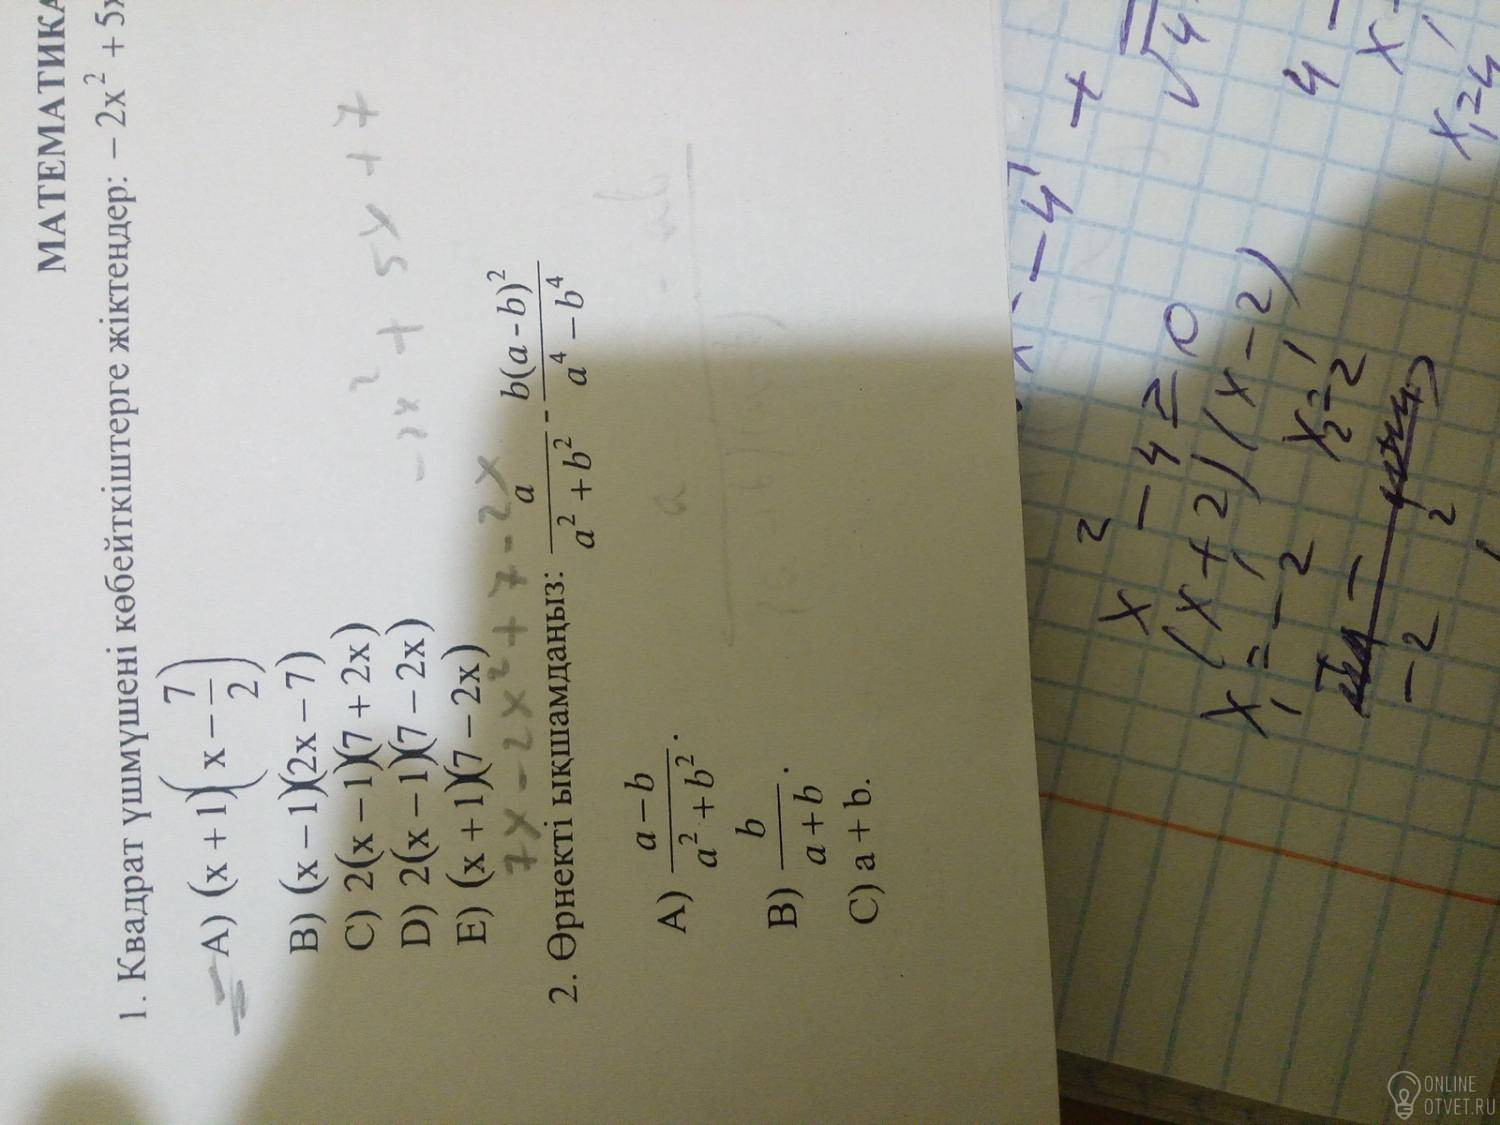 МАТЕМАТИКА
1. Квадрат үшмүшені көбейткіштерге жіктеңдер: – 2x² + 5x
A) (x + 1)(x – 7/2)
B) (x – 1)(2x – 7)
C) 2(x – 1)(7 + 2x)
D) 2(x – 1)(7 – 2x)
E) (x + 1)(7 – 2x)
– 2x² + 5x + 7
7x – 2x² + 7 – 2x
2. Өрнекті ықшамдаңыз: a/(a² + b²) - b(a - b)²/(a⁴ – b⁴)
A) (a – b)/(a² + b²).
B) b/(a + b).
C) a + b.
x² – 4 = 0
(x + 2)(x – 2)
x₁ = – 2, x₂ = 2,
– 2
2
– 4
√4
4 –
x₁ = 4
ONLINE
OTVET.RU